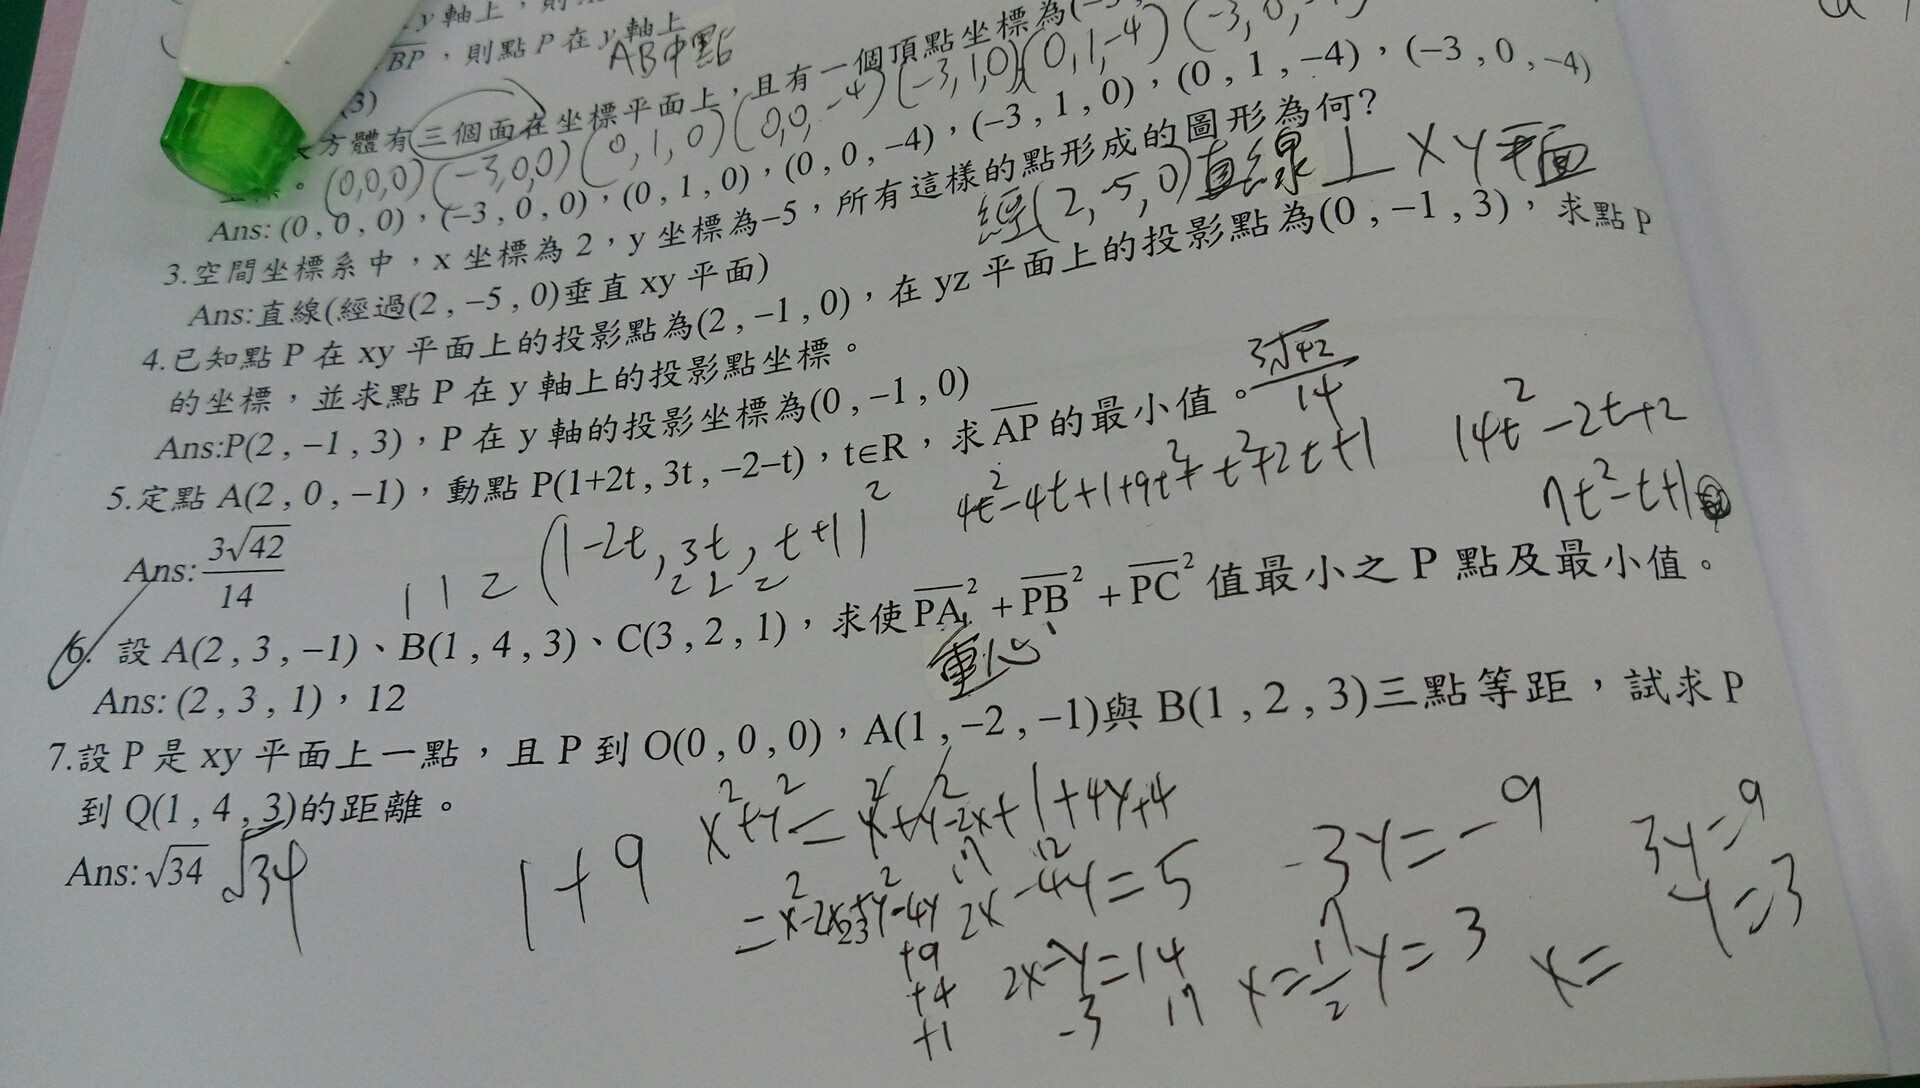 y軸上，則
BP，則點P在y軸上
AB中點
(3)
方體有三個面在坐標平面上，且有一個頂點坐標為(−3,
(0,0,0)(−3,0,0)(0,1,0)(0,0,−4)(−3,1,0)(0,1,−4)(−3,0,
Ans: (0 , 0 , 0)，(−3 , 0 , 0)，(0 , 1 , 0)，(0 , 0 , −4)，(−3 , 1 , 0)，(0 , 1 , −4)，(−3 , 0 , −4)
3.空間坐標系中，x 坐標為 2，y 坐標為−5，所有這樣的點形成的圖形為何?
經(2,−5,0)直線⊥XY平面
Ans:直線(經過(2 , −5 , 0)垂直 xy 平面)
4.已知點 P 在 xy 平面上的投影點為(2 , −1 , 0)，在 yz 平面上的投影點為(0 , −1 , 3)，求點 P
的坐標，並求點 P 在 y 軸上的投影點坐標。
Ans:P(2 , −1 , 3)，P 在 y 軸的投影坐標為(0 , −1 , 0)
5.定點 A(2 , 0 , −1)，動點 P(1+2t , 3t , −2−t)，t∈R，求 AP 的最小值。
3√42/14
4t²−4t+1+9t²+t²+2t+1
14t²−2t+2
7t²−t+1
Ans: 3√42/14
(1−2t, 3t, t+1)²
6. 設 A(2 , 3 , −1)、B(1 , 4 , 3)、C(3 , 2 , 1)，求使 PA² + PB² + PC² 值最小之 P 點及最小值。
重心
Ans: (2 , 3 , 1)，12
7.設 P 是 xy 平面上一點，且 P 到 O(0 , 0 , 0)，A(1 , −2 , −1)與 B(1 , 2 , 3)三點等距，試求 P
到 Q(1 , 4 , 3)的距離。
Ans: √34 √34
1+9
x²+y²=x²+y²−2x+1+4y+4
2x−4y=5
−3y=−9
3y=9
y=3
+9
+4
+1
2x−y=14
−3
17
y=3
x=